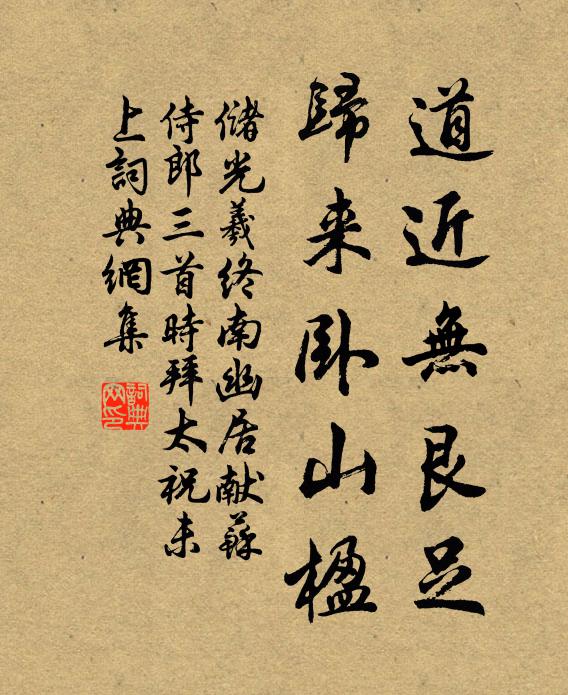 道近無艮足
歸来卧山楹
儲光羲终南幽居献蘇
侍郎三首時拜太祝未
上詞典網集
詞典
网印